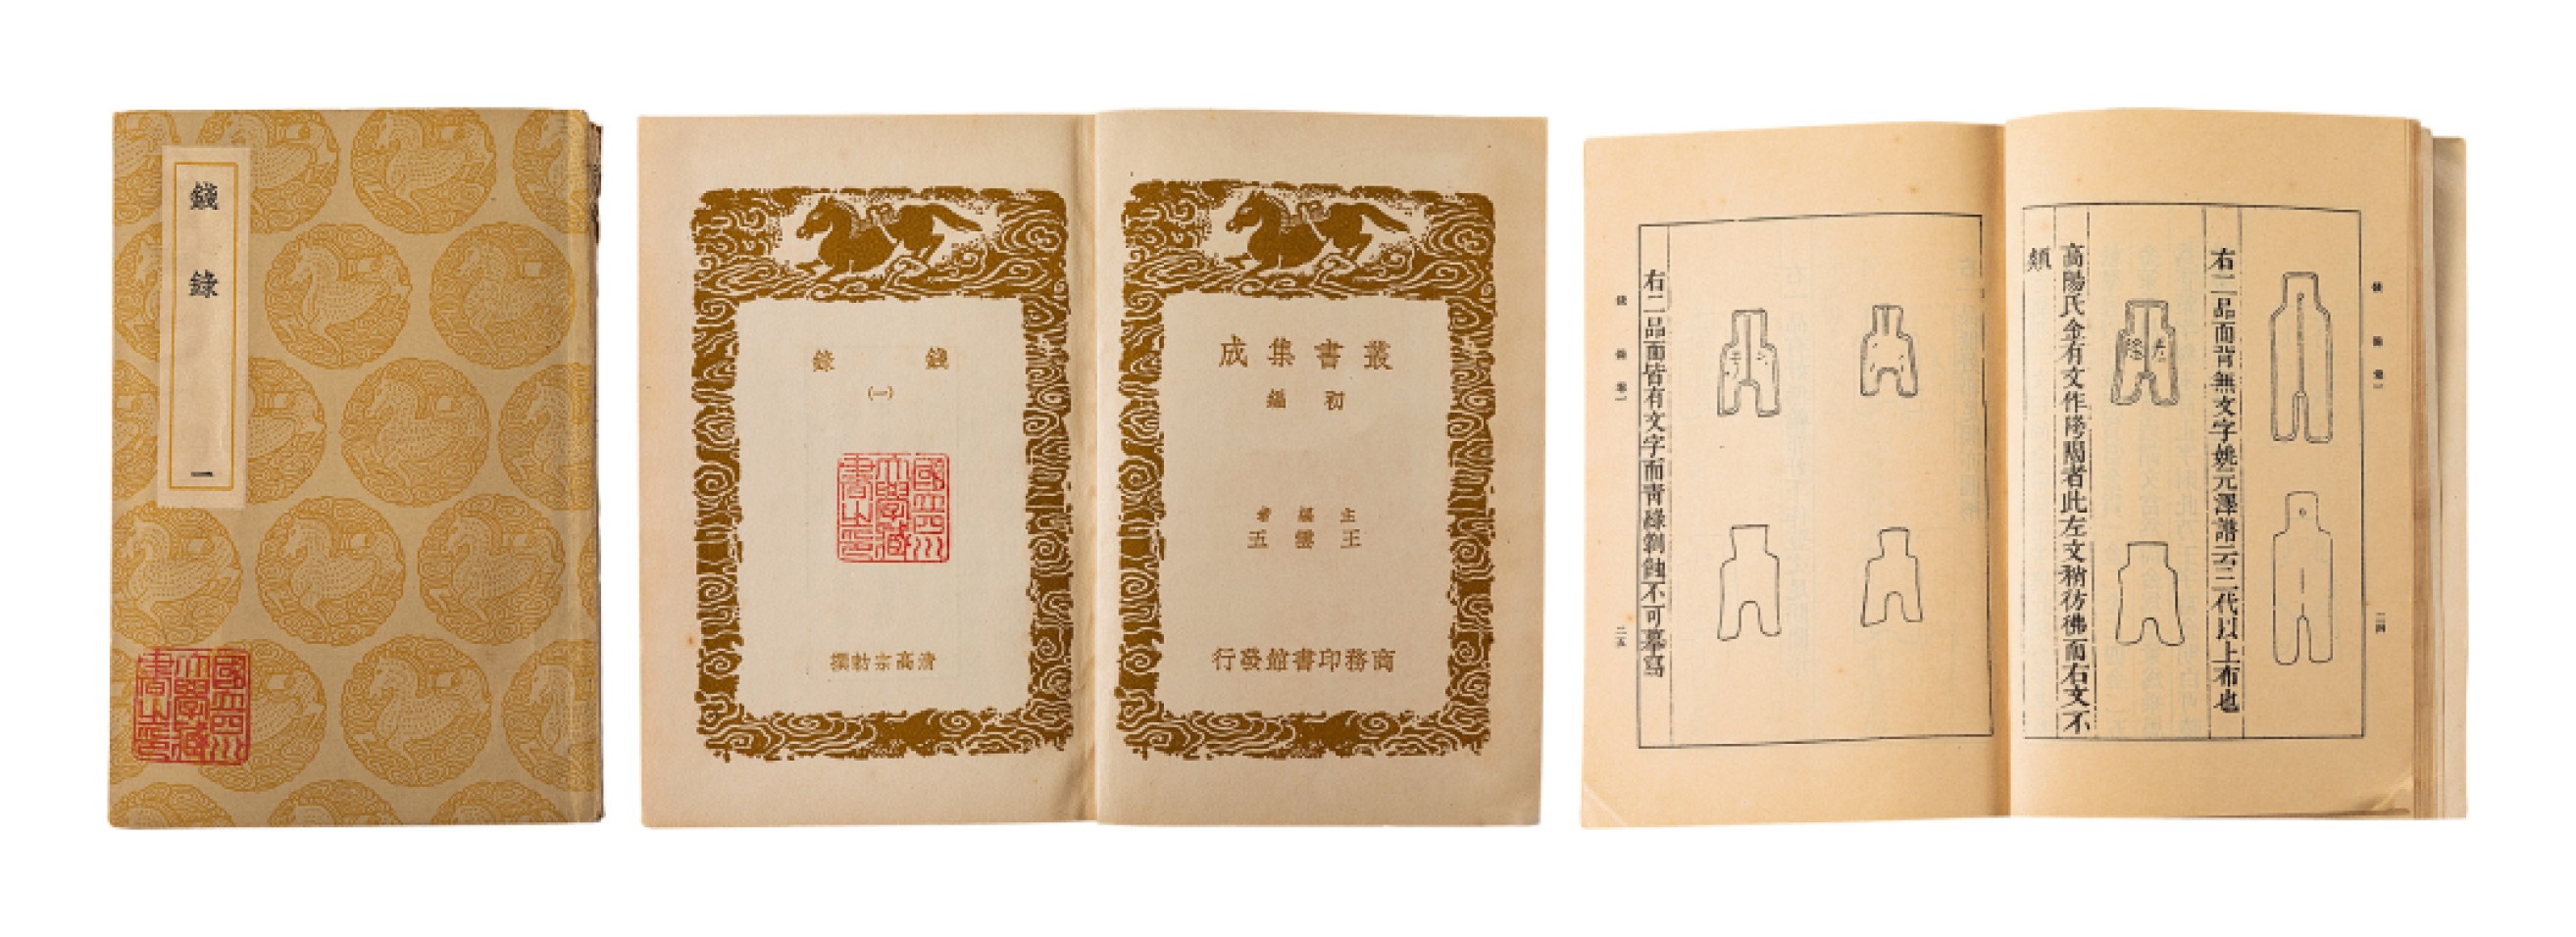 錢錄
一
國立四川
大學藏
書之印
叢書集成
初編
主編者
王雲五
商務印書館發行
錢錄
(一)
國立四川
大學藏
書之印
清高宗敕撰
錢錄 卷一
二四
右二品面背無文字姚元澤譜云三代以上布也
高陽氏金有文作陽者此左文稍彷彿而右文不
類
右二品面皆有文字而青綠剝蝕不可摹寫
錢錄 卷一
二五